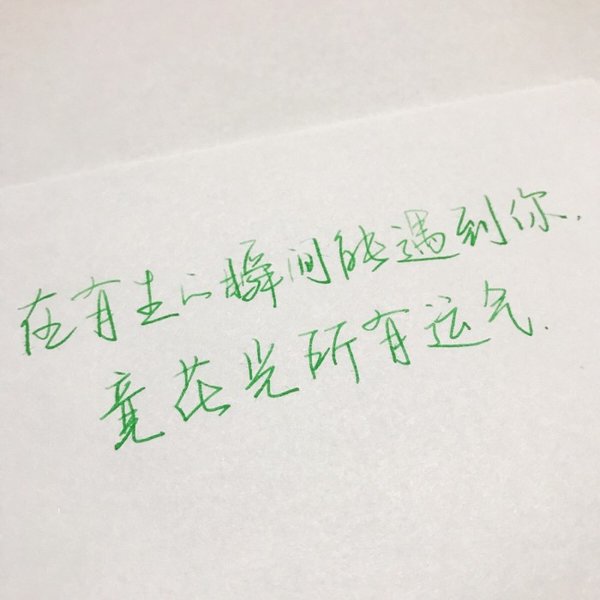 在有生的瞬间能遇到你.
竟花光所有运气.